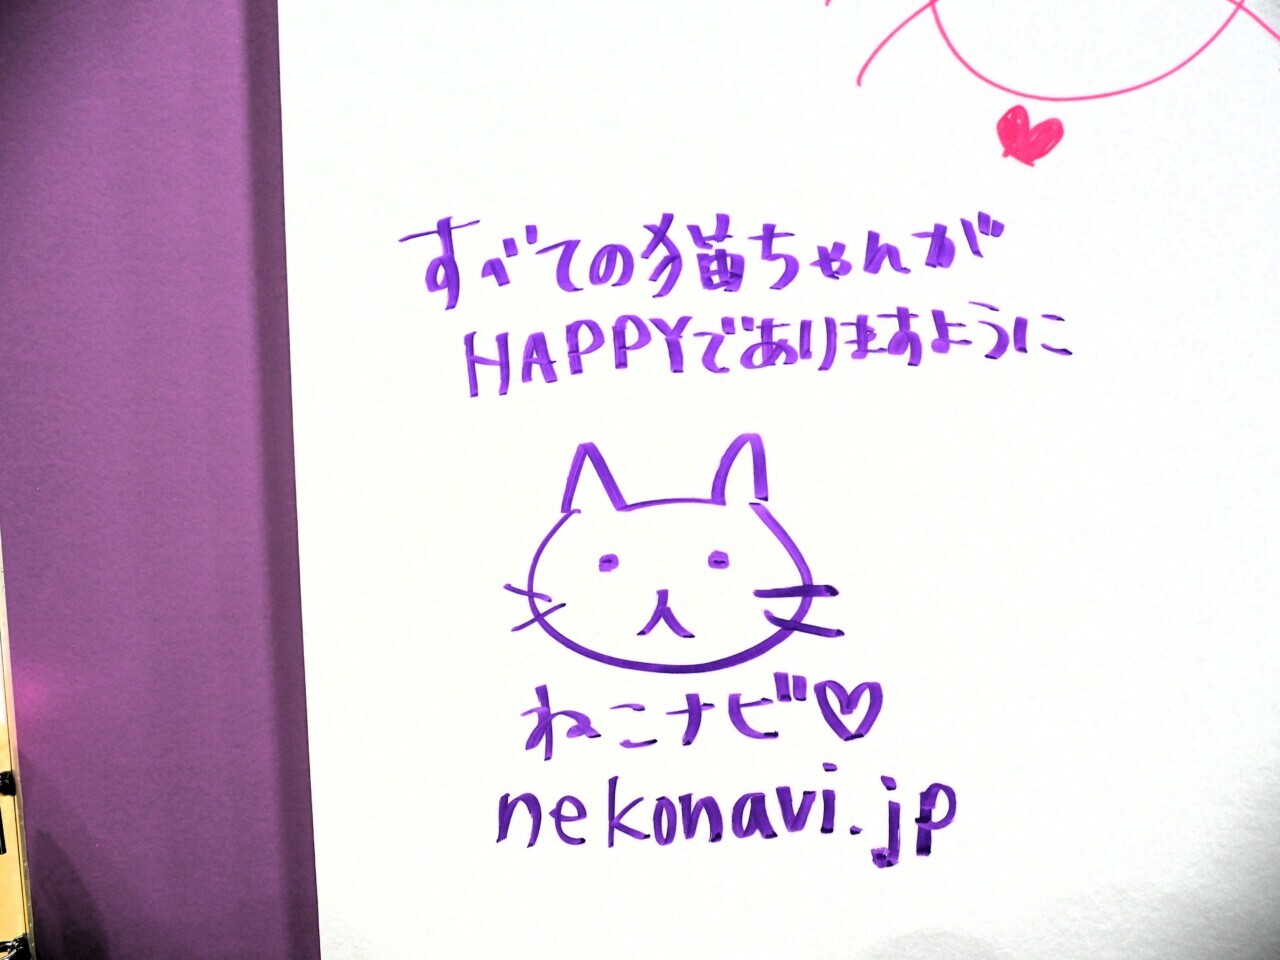 すべての猫ちゃんが
HAPPYでありますように
ねこナビ♡
nekonavi.jp